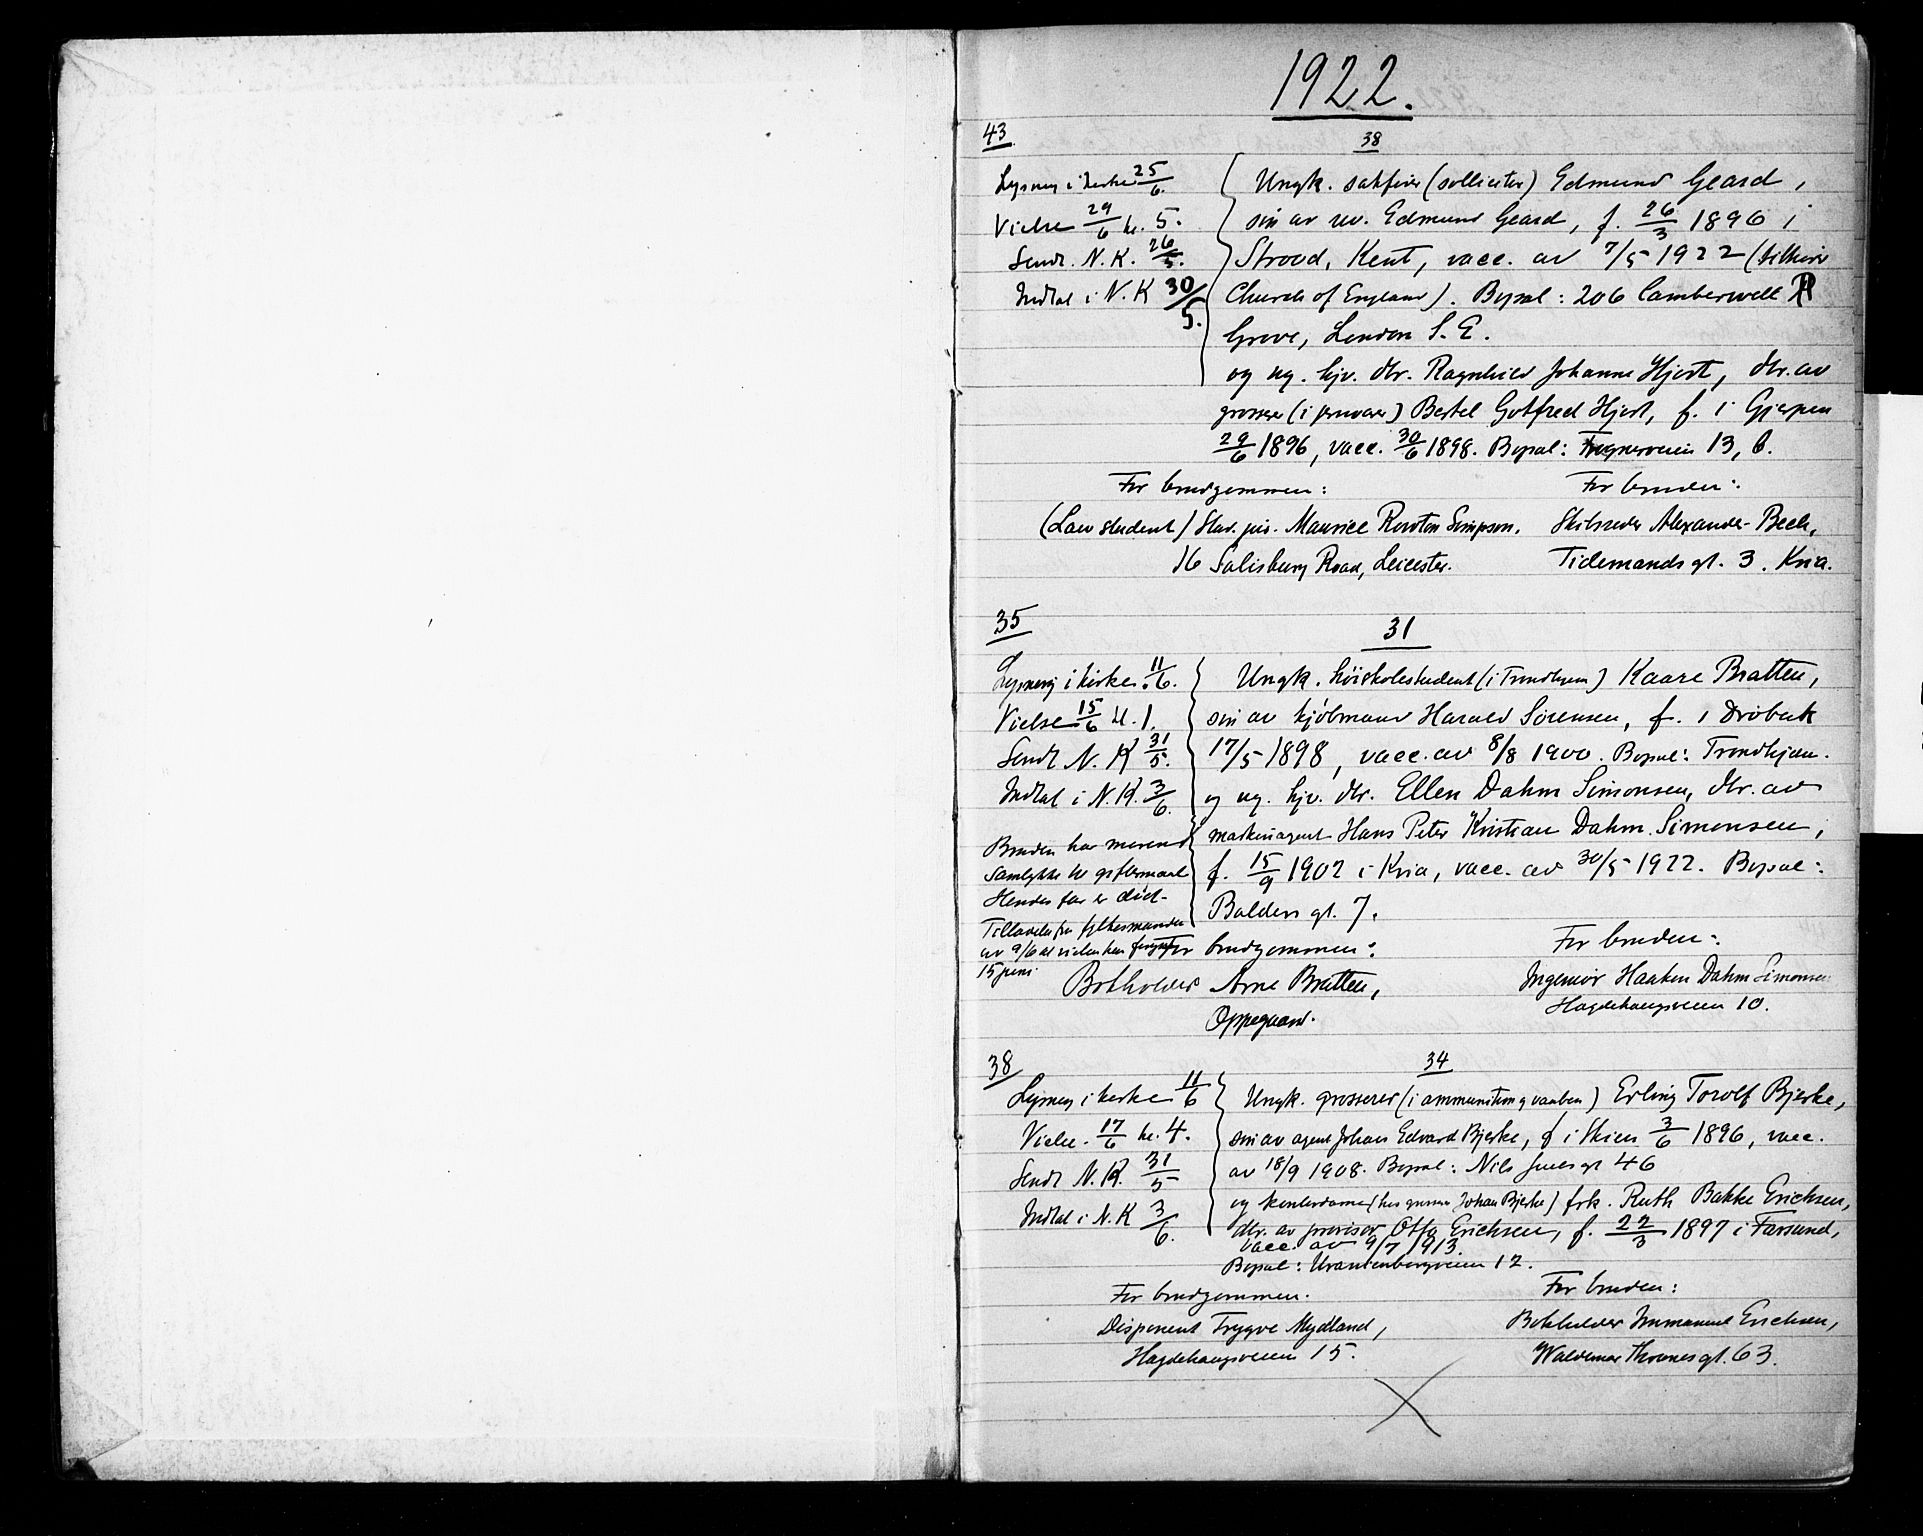 1922.
43
38
Lysning i kirke 25/6.
Vielse 29/6 kl. 5.
Sendt. N. K. 26/5.
Indtat i N. K 30/5.
Ungk. sakfører (solliciter) Edmund Geard,
søn av rev. Edmund Geard, f. 26/3 1896 i
Strood, Kent, vacc. av 7/5 1922 (tilhører
Church of England). Bopæl: 206 Camberwell
Grove, London S. E.
og ug. hjv. dtr. Ragnhild Johanne Hjort, dtr. av
grosserer (i jernvarer) Bertel Gotfred Hjort, f. i Gjerpen
29/6 1896, vacc. 30/6 1898. Bopæl: Frognerveien 13, b.
For brudgommen:
For bruden:
(Law student) Stud. jur. Maurice Rowton Simpson,
16 Salisbury Road, Leicester.
Skibsreder Alexander Bech,
Tidemands gt. 3. Kria.
35
31
Lysning i kirke 11/6.
Vielse 15/6 kl. 1.
Sendt N. K 31/5.
Indtat i N. K. 3/6.
Bruden har morens
samtykke til giftermaal
Hendes far er død.
Tilladelse fra fylkesmanden
av 9/6 at vielsen kan foregaa
15 juni
Ungk. høiskolestudent (i Trondhjem) Kaare Bratten,
søn av kjøbmand Harald Sørensen, f. i Drøbak
17/5 1898, vacc. av 8/8 1900. Bopæl: Trondhjem.
og ug. hjv. dtr. Ellen Dahm Simonsen, dtr. av
maskinagent Hans Peter Kristian Dahm Simonsen,
f. 15/9 1902 i Kria, vacc. av 30/5 1922. Bopæl:
Balders gt. 7.
For brudgommen:
For bruden:
Bokholder Arne Bratten,
Oppegaard.
Ingeniør Haakon Dahm Simonsen
Hagdehaugsveien 10.
38
34
Lysning i kirke 11/6
Vielse. 17/6 kl. 4.
Sendt N. K. 31/5
Indtat i N. K 3/6.
Ungk. grosserer (i ammunition og vaaben) Erling Torolf Bjerke,
søn av agent Johan Edvard Bjerke, f. i Skien 3/6 1896, vacc.
av 18/9 1908. Bopæl: Nils Juels gt 46
og kontordame (hos grosserer Johan Bjerke) frk. Ruth Bakke Erichsen,
dtr. av provisor Otto Erichsen, f. 22/3 1897 i Farsund,
vacc. av 9/7 1913.
Bopæl: Uranienborgveien 12.
For brudgommen.
For bruden:
Disponent Trygve Mydland,
Hagdehaugsveien 15.
Bokholder Immanuel Erichsen,
Waldemar Thranes gt. 63.